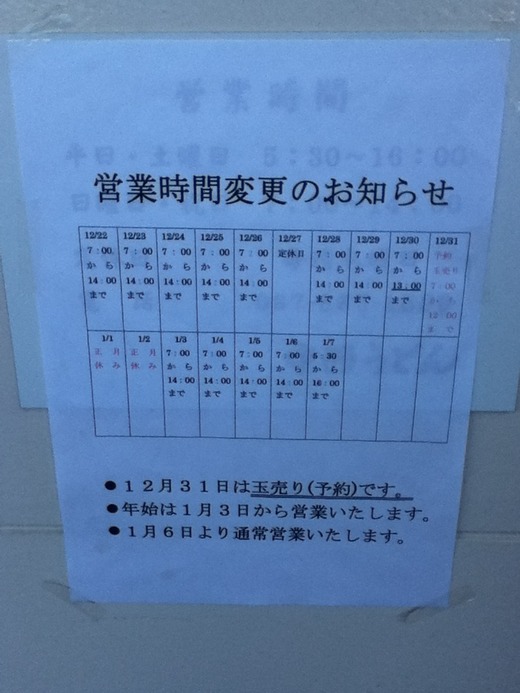 営業時間
平日・土曜日 5：30～16：00
営業時間変更のお知らせ
12/22 12/23 12/24 12/25 12/26 12/27 12/28 12/29 12/30 12/31
7：00 7：00 7：00 7：00 7：00 定休日 7：00 7：00 7：00 予約
から から から から から から から から 玉売り
14：00 14：00 14：00 14：00 14：00 14：00 14：00 13：00 7：00
まで まで まで まで まで まで まで まで から
12：00
まで
1/1 1/2 1/3 1/4 1/5 1/6 1/7
正月 正月 7：00 7：00 7：00 7：00 5：30
休み 休み から から から から から
14：00 14：00 14：00 14：00 16：00
まで まで まで まで まで
●１２月３１日は玉売り(予約)です。
●年始は１月３日から営業いたします。
●１月６日より通常営業いたします。